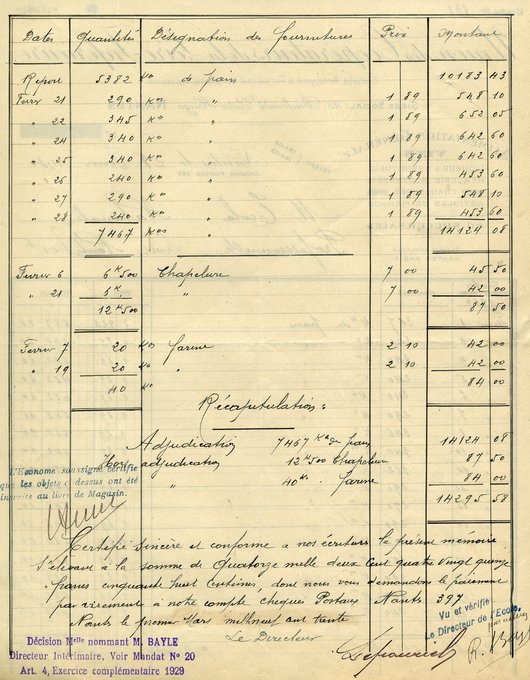 Dates Quantités Désignation des fournitures Prix Montant
Report 5382 Kos de pain 10183 43
Fevrier 21 290 Kos " 1 89 548 10
" 22 345 Kos " 1 89 652 05
" 24 340 Kos " 1 89 642 60
" 25 340 Kos " 1 89 642 60
" 26 240 Kos " 1 89 453 60
" 27 290 Kos " 1 89 548 10
" 28 240 Kos " 1 89 453 60
7467 Kos 14124 08
Fevrier 6 6K500 Chapelure 7 00 45 50
" 21 6K. " 7 00 42 00
12K500 87 50
Fevrier 7 20 Kos farine 2 10 42 00
" 19 20 Ko " 2 10 42 00
40 Ko 84 00
Récapitulation :
Adjudication 7467 Kos de pain 14124 08
Hors adjudication 12K500 Chapelure 87 50
" 40Ko. farine 84 00
14295 58
L'Econome soussigné certifie
que les objets ci dessus ont été
inscrits au livre de Magasin.
Certifié sincère et conforme a nos écritures le présent mémoire
s'élevant à la somme de Quatorze mille deux Cent quatre vingt quinze
francs cinquante huit Centimes, dont nous vous demandons le paiement
par virement à notre compte cheques Postaux Nantes 397
Nantes le premier Mars mil neuf cent trente
Le Directeur
Vu et vérifié
Le Directeur de l'Ecole,
par intérim
R. Bayle
Décision Melle nommant M. BAYLE
Directeur Intérimaire, Voir Mandat No 20
Art. 4, Exercice complémentaire 1929